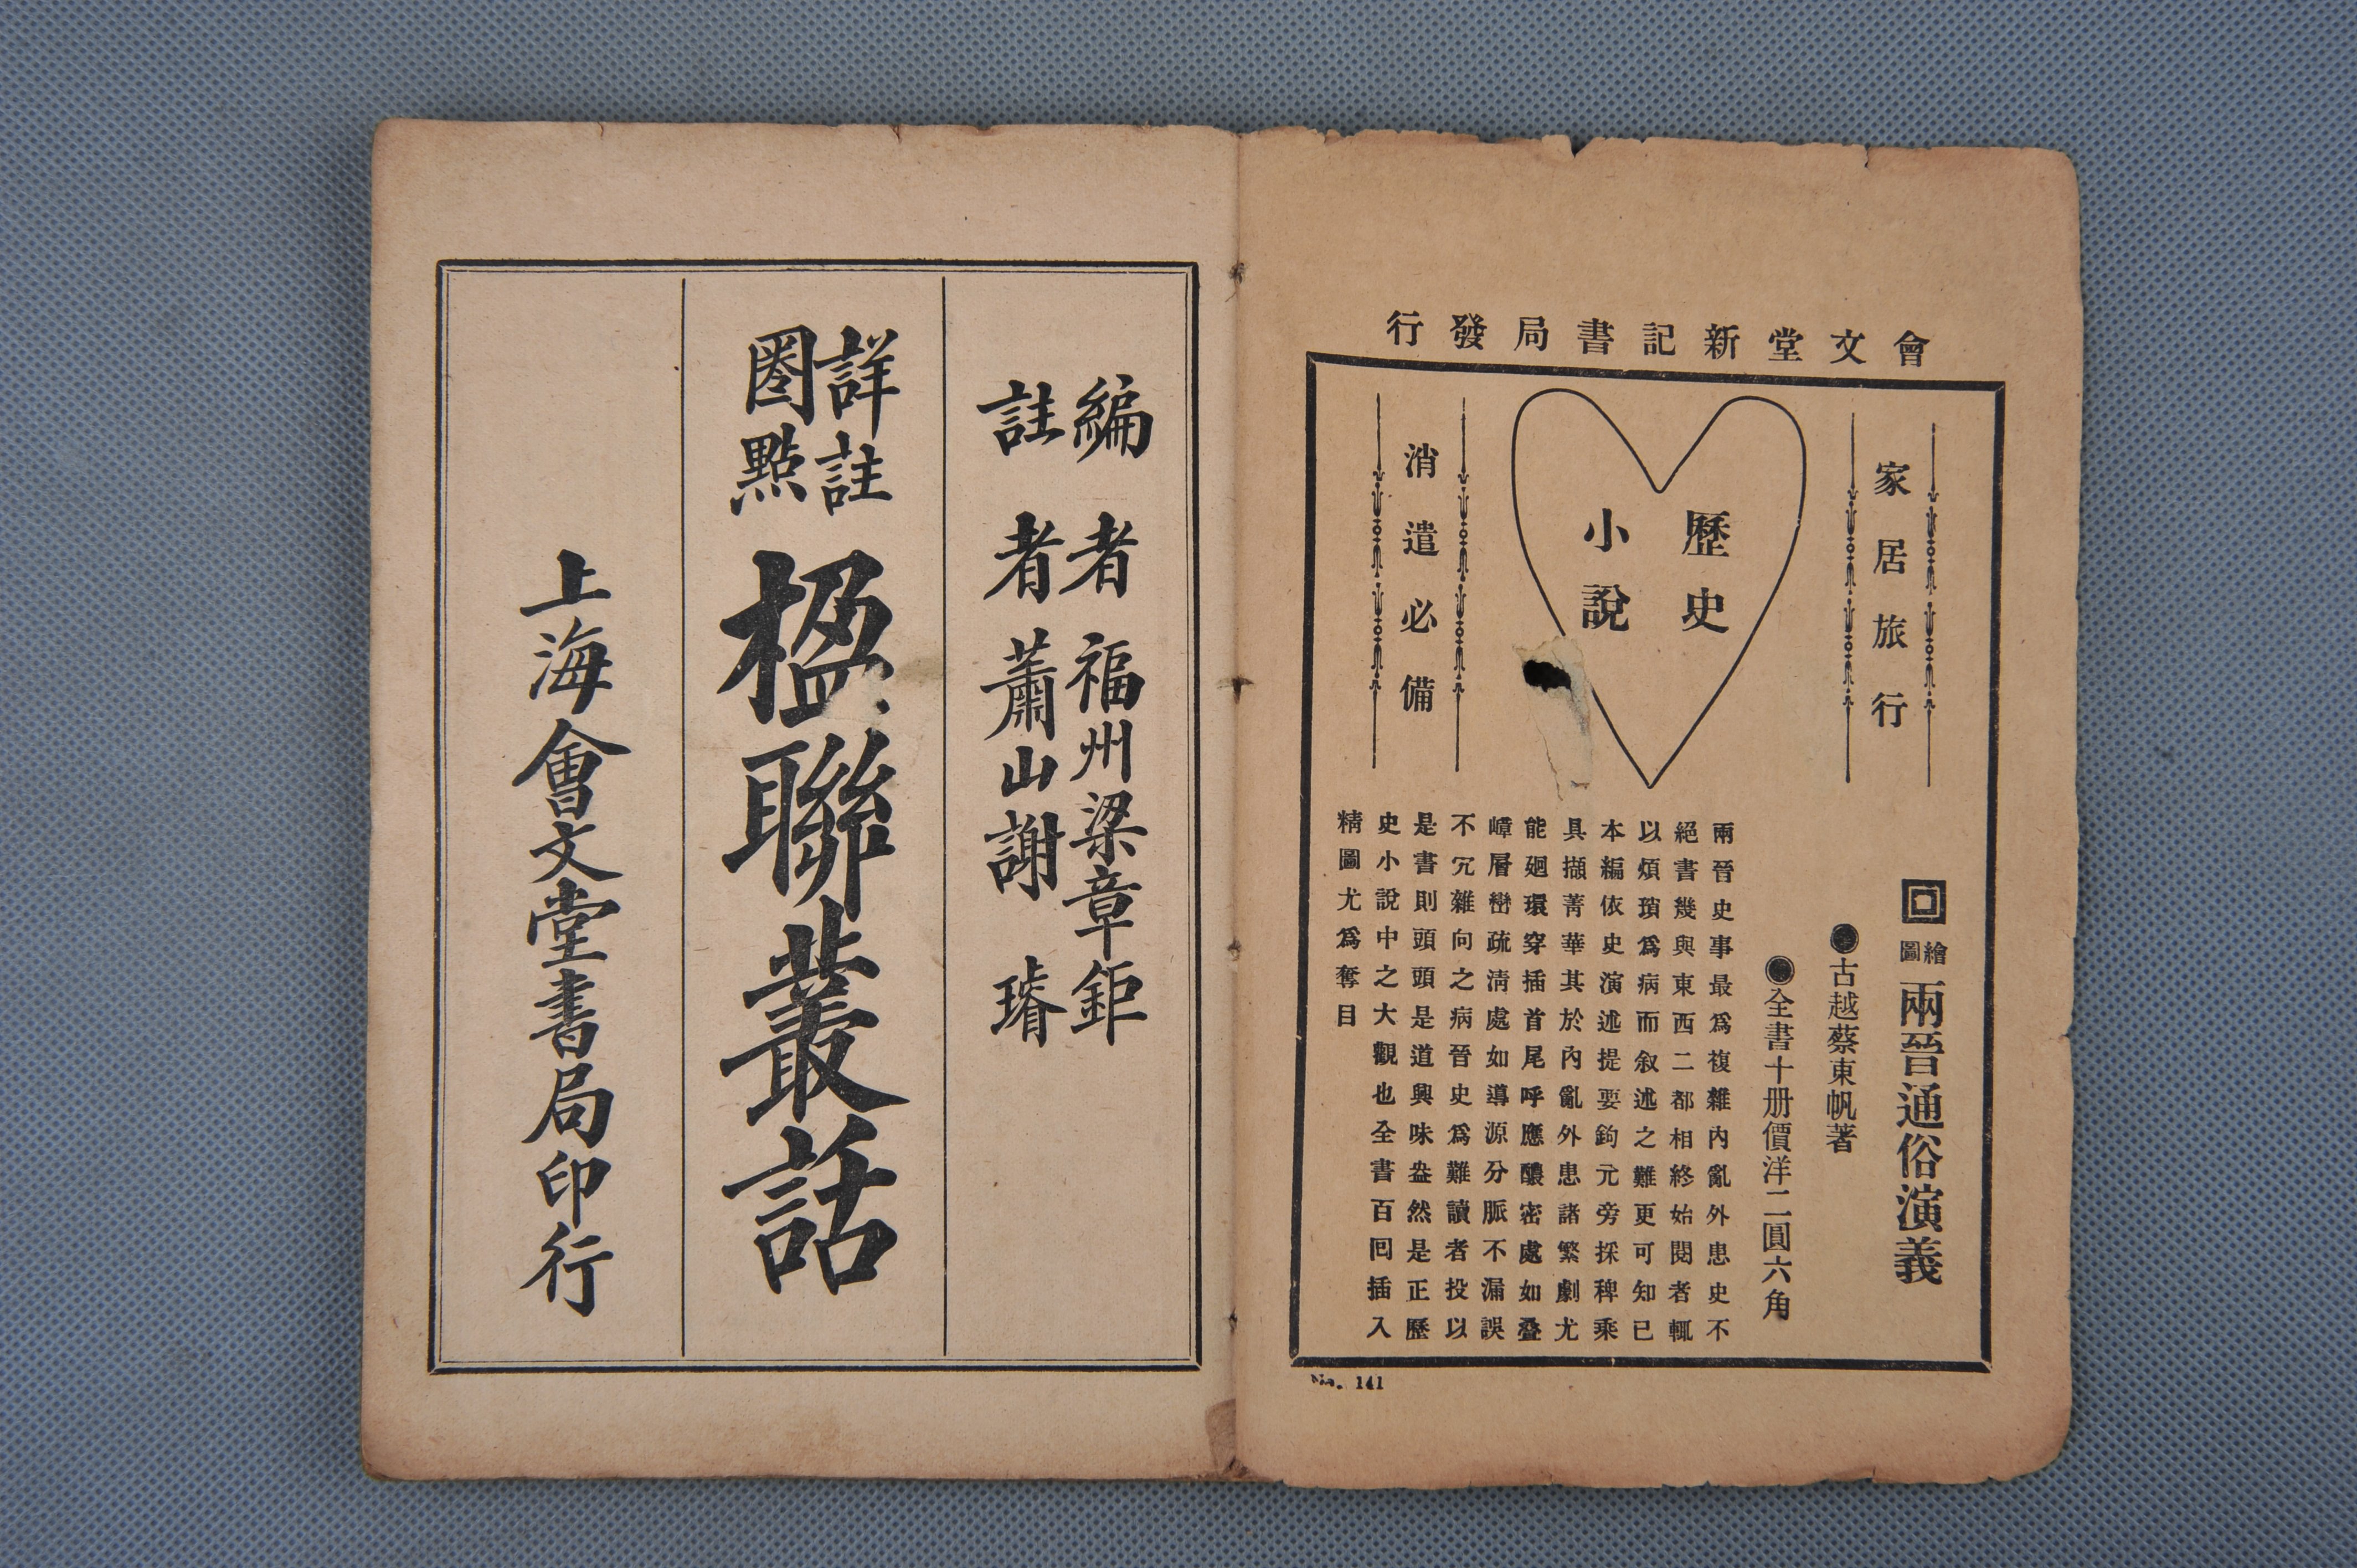 會文堂新記書局發行
家居旅行
歷史
小說
消遣必備
繪圖兩晉通俗演義
古越蔡東帆著
全書十册價洋二圓六角
兩晉史事最爲複雜內亂外患史不
絕書幾與東西二都相終始閱者輒
以煩瑣爲病而叙述之難更可知已
本編依史演述提要鉤元旁採稗乘
具擷菁華其於內亂外患諸繁劇尤
能廻環穿插首尾呼應醲密處如疊
嶂層巒疏淸處如導源分脈不漏誤
不冗雜向之病晉史爲難讀者投以
是書則頭頭是道興味盎然是正歷
史小說中之大觀也全書百囘插入
精圖尤爲奪目
No. 141
編者福州梁章鉅
註者蕭山謝璿
詳註
圈點
楹聯叢話
上海會文堂書局印行